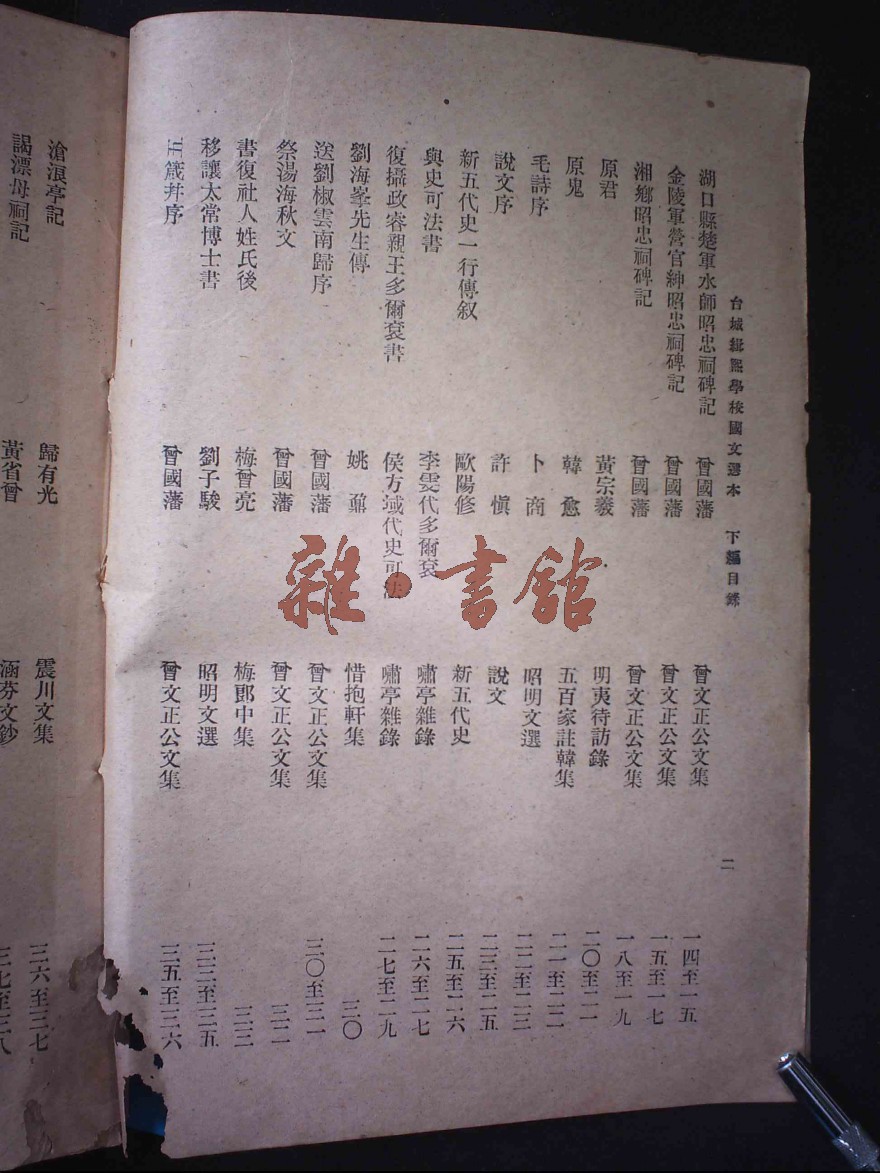 台城緝熙學校國文選本 下編目錄 二
湖口縣楚軍水師昭忠祠碑記 曾國藩 曾文正公文集 一四至一五
金陵軍營官紳昭忠祠碑記 曾國藩 曾文正公文集 一五至一七
湘鄉昭忠祠碑記 曾國藩 曾文正公文集 一八至一九
原君 黃宗羲 明夷待訪錄 二〇至二一
原鬼 韓愈 五百家註韓集 二一至二二
毛詩序 卜商 昭明文選 二二至二三
說文序 許慎 說文 二三至二五
新五代史一行傳叙 歐陽修 新五代史 二五至二六
與史可法書 李雯代多爾袞 嘯亭雜錄 二六至二七
復攝政睿親王多爾袞書 侯方域代史可法 嘯亭雜錄 二七至二九
劉海峯先生傳 姚鼐 惜抱軒集 三〇
送劉椒雲南歸序 曾國藩 曾文正公文集 三〇至三一
祭湯海秋文 曾國藩 曾文正公文集 三二
書復社人姓氏後 梅曾亮 梅郎中集 三三
移讓太常博士書 劉子駿 昭明文選 三三至三五
五箴幷序 曾國藩 曾文正公文集 三五至三六
滄浪亭記 歸有光 震川文集 三六至三七
謁漂母祠記 黃省曾 涵芬文鈔 三七至三八
雜·書館